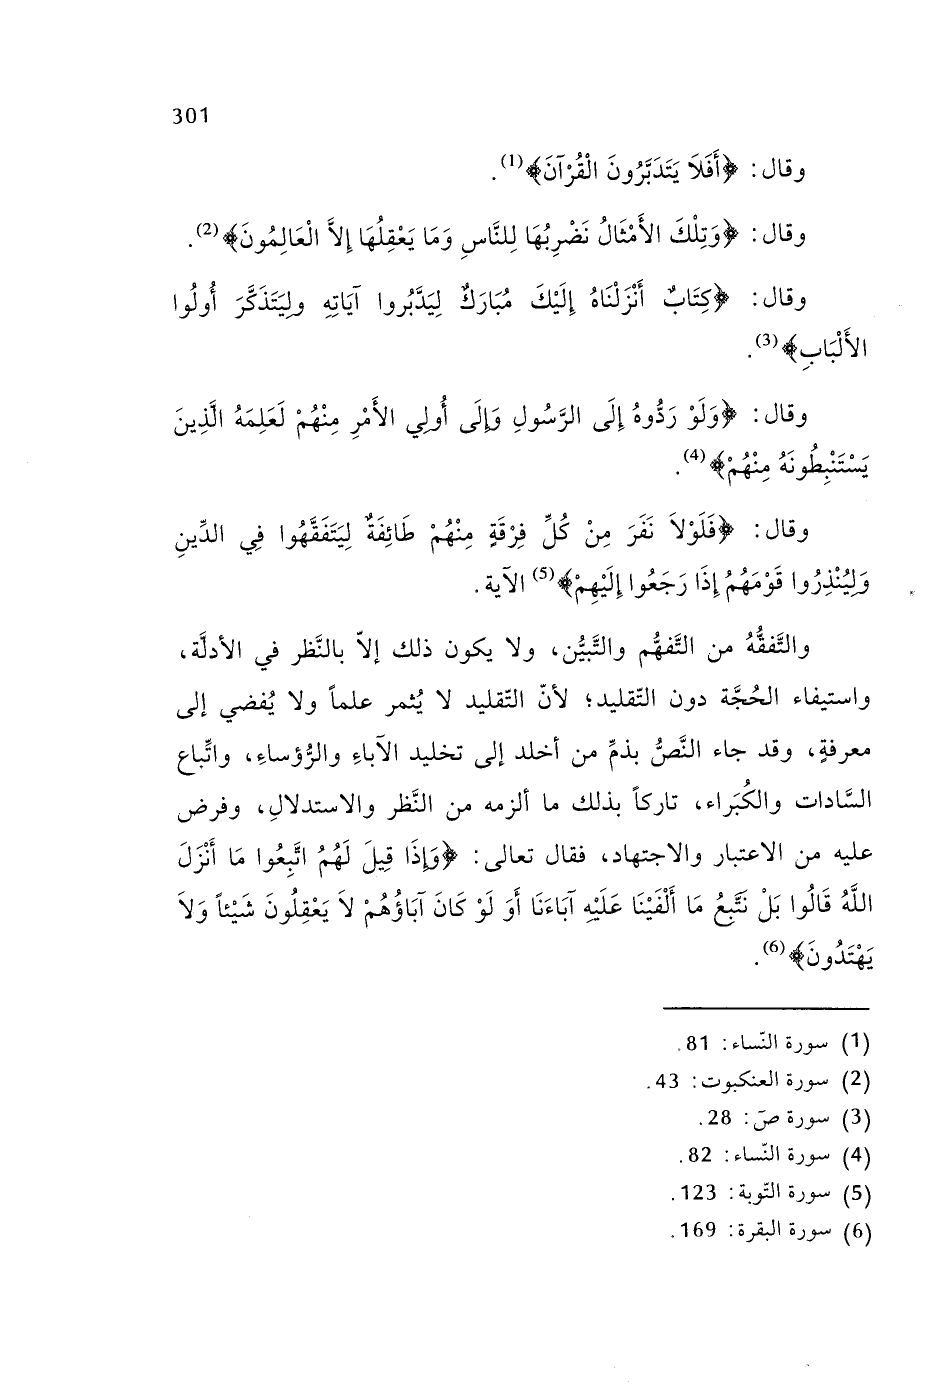 301
وقال : ﴿أَفَلَا يَتَدَبَّرُونَ الْقُرْآنَ﴾(1).
وقال : ﴿وَتِلْكَ الأَمْثَالُ نَضْرِبُهَا لِلنَّاسِ وَمَا يَعْقِلُهَا إِلاَّ الْعَالِمُونَ﴾(2).
وقال : ﴿كِتَابٌ أَنْزَلْنَاهُ إِلَيْكَ مُبَارَكٌ لِيَدَّبَّرُوا آيَاتِهِ ولِيَتَذَكَّرَ أُولُوا
الأَلْبَابِ﴾(3).
وقال : ﴿وَلَوْ رَدُّوهُ إِلَى الرَّسُولِ وَإِلَى أُولِي الأَمْرِ مِنْهُمْ لَعَلِمَهُ الَّذِينَ
يَسْتَنْبِطُونَهُ مِنْهُمْ﴾(4).
وقال : ﴿فَلَوْلاَ نَفَرَ مِنْ كُلِّ فِرْقَةٍ مِنْهُمْ طَائِفَةٌ لِيَتَفَقَّهُوا فِي الدِّينِ
وَلِيُنْذِرُوا قَوْمَهُمْ إِذَا رَجَعُوا إِلَيْهِمْ﴾(5) الآية .
والتَّفقُّهُ من التَّفهُّم والتَّبيُّن، ولا يكون ذلك إلاّ بالنَّظر في الأدلَّة،
واستيفاء الحُجَّة دون التّقليد؛ لأنّ التّقليد لا يُثمر علماً ولا يُفضي إلى
معرفةٍ، وقد جاء النَّصُّ بذمِّ من أخلد إلى تخليد الآباءِ والرُّؤساءِ، واتِّباع
السَّادات والكُبَراء، تاركاً بذلك ما ألزمه من النَّظر والاستدلالِ، وفرض
عليه من الاعتبار والاجتهاد، فقال تعالى : ﴿وَإِذَا قِيلَ لَهُمُ اتَّبِعُوا مَا أَنْزَلَ
اللَّهُ قَالُوا بَلْ نَتَّبِعُ مَا أَلْفَيْنَا عَلَيْهِ آبَاءَنَا أَوَ لَوْ كَانَ آبَاؤُهُمْ لاَ يَعْقِلُونَ شَيْئاً وَلاَ
يَهْتَدُونَ﴾(6).
(1) سورة النّساء : 81.
(2) سورة العنكبوت : 43.
(3) سورة صۤ : 28.
(4) سورة النّساء : 82.
(5) سورة التّوبة : 123.
(6) سورة البقرة : 169.